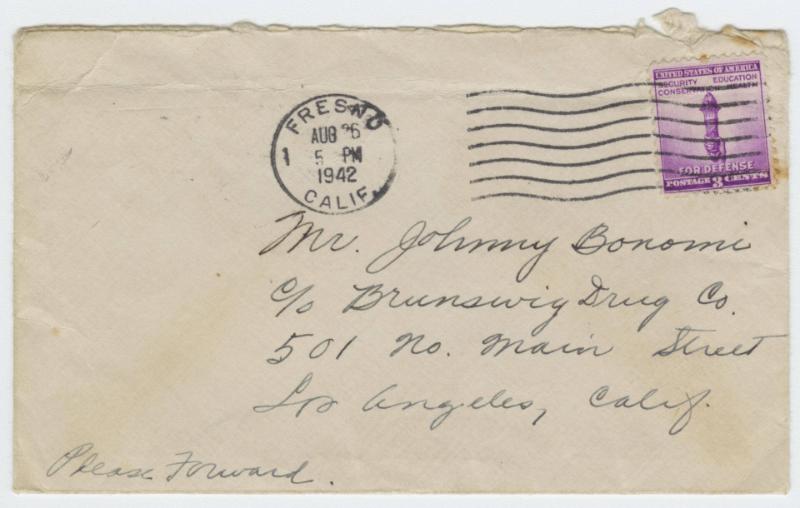 UNITED STATES OF AMERICA
SECURITY EDUCATION
CONSERVATION HEALTH
FOR DEFENSE
POSTAGE 3 CENTS
FRESNO
AUG 26
1 5 PM
1942
CALIF.
Mr. Johnny Bonomi
c/o Brunswig Drug Co.
501 No. Main Street
Los Angeles, Calif.
Please Forward.